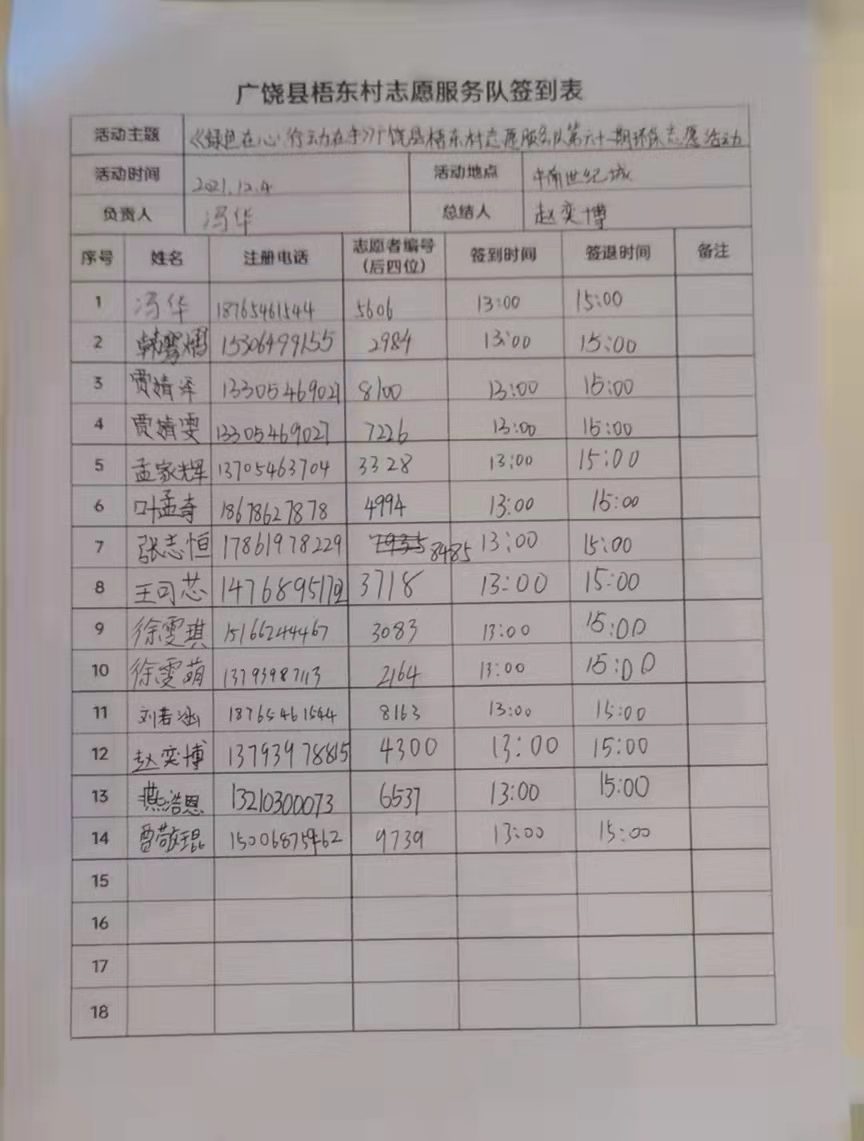 广饶县梧东村志愿服务队签到表
活动主题 《绿色在心 行动在手》广饶县梧东村志愿服务队第六十一期环保志愿活动
活动时间 2021.12.4 活动地点 世纪城
负责人 冯华 总结人 赵奕博
序号 姓名 注册电话 志愿者编号（后四位） 签到时间 签退时间 备注
1 冯华 18765461544 5606 13:00 15:00
2 韩 15306499155 2984 13:00 15:00
3 贾婧泽 13305469027 8100 13:00 15:00
4 贾婧雯 13305469027 7226 13:00 15:00
5 孟家辉 13705463704 3328 13:00 15:00
6 叶孟奇 18678627878 4994 13:00 15:00
7 张志恒 17861978229 8485 13:00 15:00
8 王可芯 3718 13:00 15:00
9 徐雯琪 15166244467 3083 13:00 15:00
10 徐雯萌 13793987113 2164 13:00 15:00
11 刘若涵 18765461544 8163 13:00 15:00
12 赵奕博 13793978815 4300 13:00 15:00
13 燕浩恩 13210300073 6537 13:00 15:00
14 敬琨 15006875462 9739 13:00 15:00
15
16
17
18